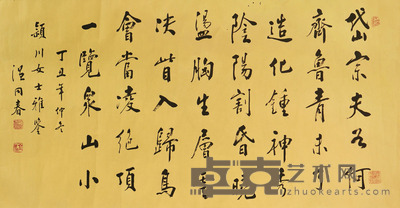 岱宗夫如何
齊魯青未了
造化鍾神秀
陰陽割昏曉
盪胸生層雲
決眥入歸鳥
會當凌絕頂
一覽衆山小
丁丑年仲冬
潁川女士雅鑒
温同春
卓克艺术网
www.zhuokearts.com